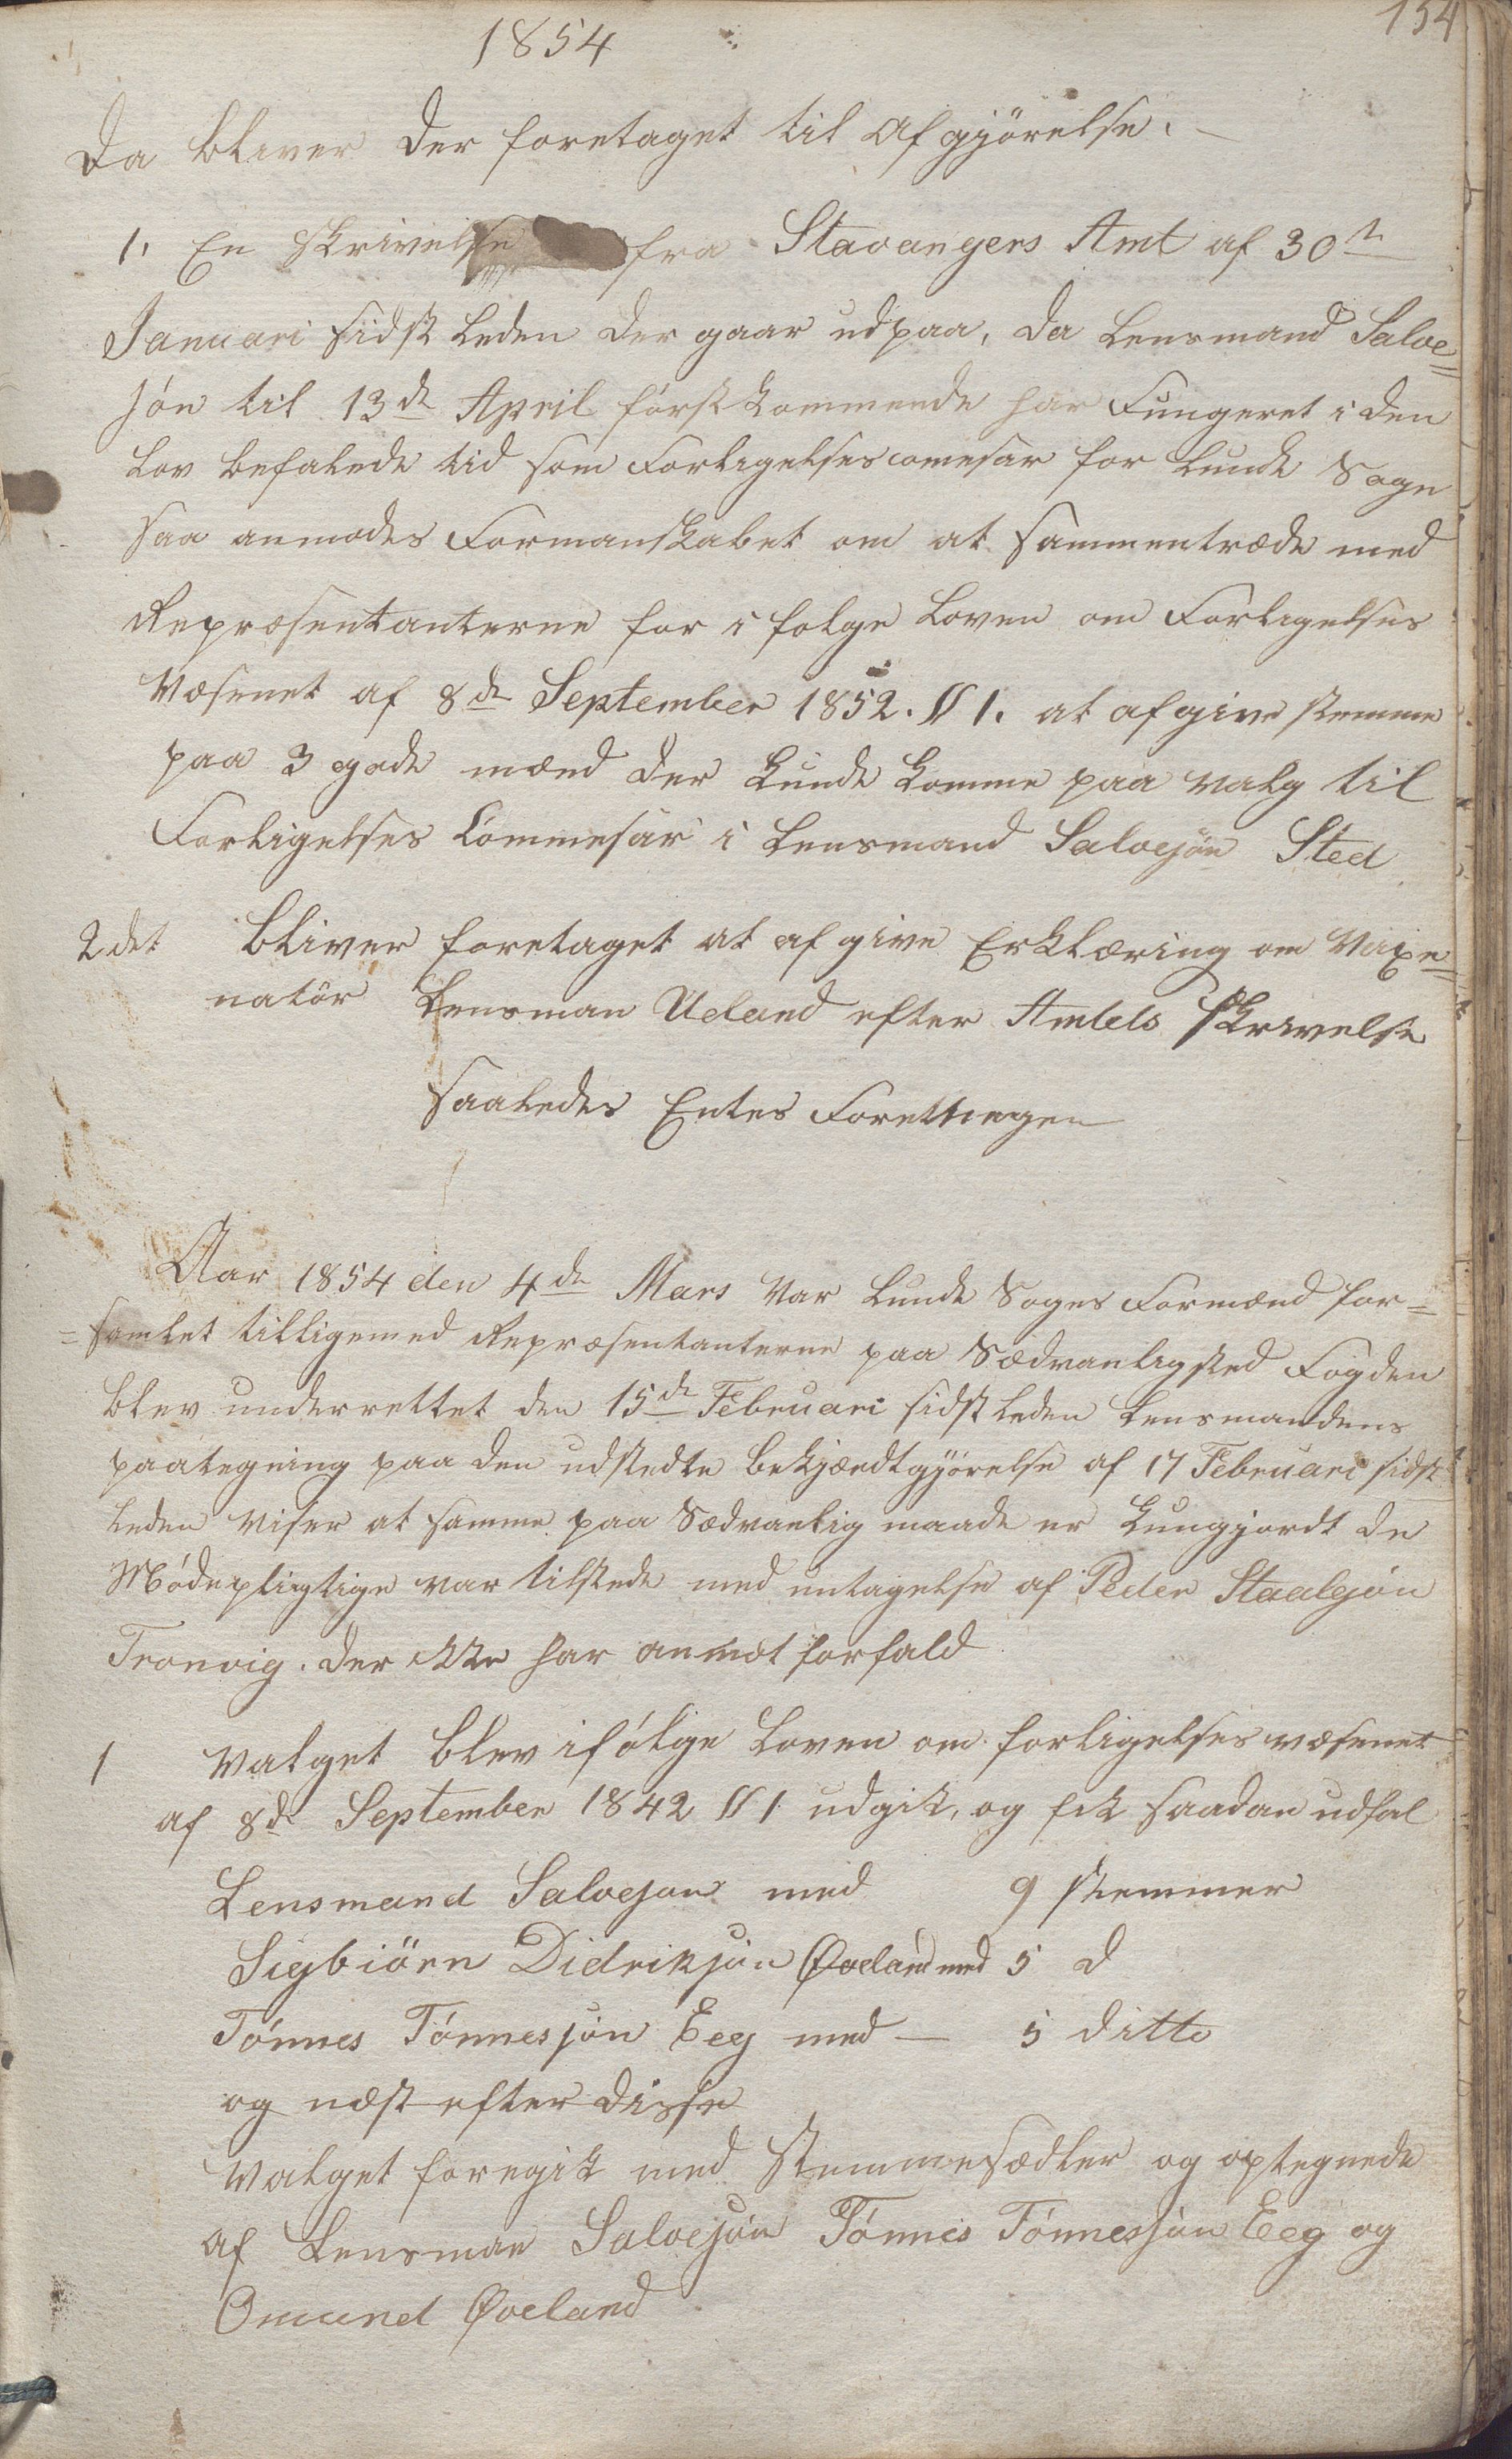 154
1854
Da bliver der foretaget til Afgjörelse.
1. En Skrivelse fra Stavangers Amt af 30te
Januari sidst leden der gaar udpaa, da Lensmand Salve=
sön til 13de April först kommende har Fungeret i den
Lov befalede tid som Forligelsescomesar for Lunde Sogn
saa anmodes Formanskabet om at sammentræde med
Repræsentanterne for i folge Loven om Forligelses
Væsenet af 8de September 1852. § 1. at afgive stemme
paa 3 gode mænd der kunde komme paa valg til
Forligelses Commesar i Lensmand Salvesön Sted
2det Bliver foretaget at afgive Erklæring om Vaxe=
natör Lensman Ueland efter Amtets Skrivelse
Saaledes Entes Foretningen
Aar 1854 den 4de Mars Var Lunde Sogns Formænd for=
=samlet tilligemed Repræsentanterne paa Sædvanligsted Fogden
blev underrettet den 15de Februari sidst leden Lensmandens
paategning paa den udstedte bekjændtgjörelse af 17 Februari sidst
leden viser at samme paa Sædvanlig maade er kungjordt De
Mödepligtige var tilstede med untagelse af Peder Staalesön
Tronvig. der ikke har anmelt forfald
1 Valget blev ifölge Loven om forligelsesvæsenet
af 8de September 1842 § 1 udgik, og fik saadan udfal
Lensmand Salveson med 9 Stemmer
Sigbiörn Didriksön Øveland med 5 D
Tönnes Tönnesson Eeg med — 5 ditto
og næst efter disse
Valget foregik med Stemmesedler og optegnede
af Lensman Salvesön Tönnes Tönnesson Eeg og
Omund Øveland